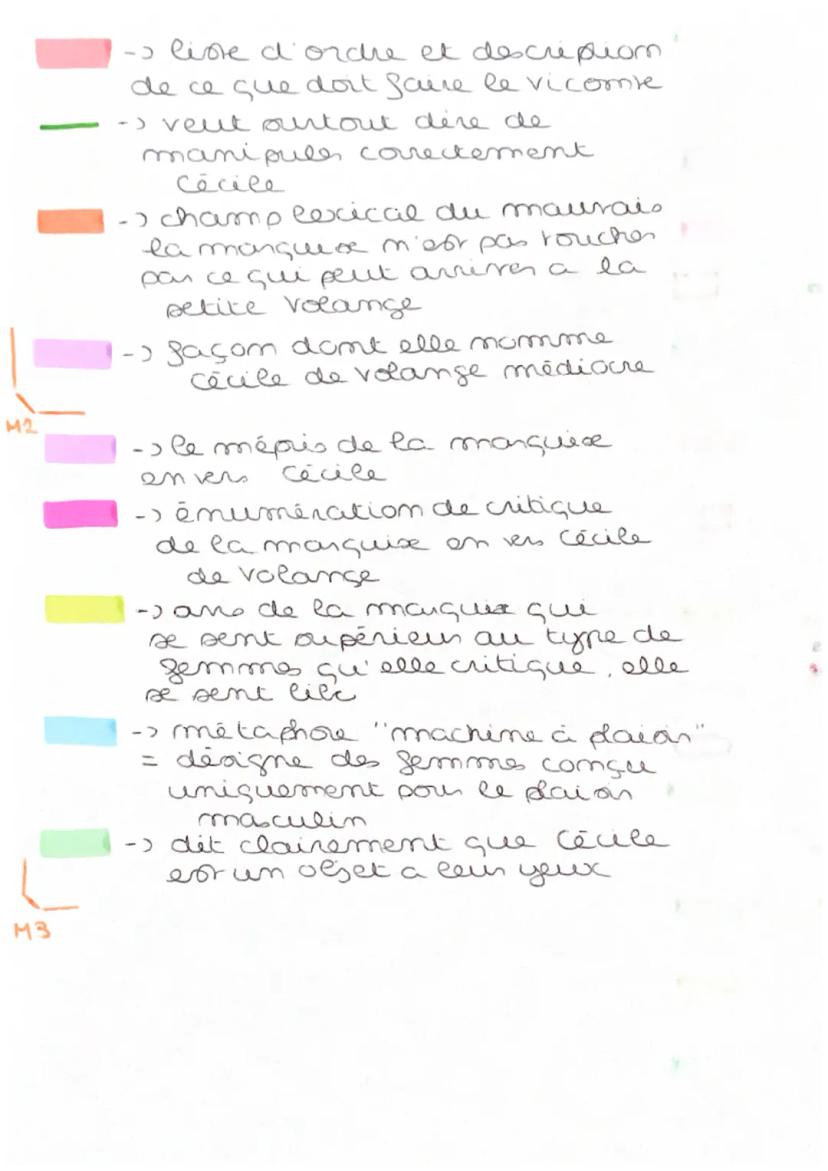 -> liste d'ordre et description
de ce que doit faire le vicomte
-> veut surtout dire de
manipuler correctement
Cécile
-> champ lexical du mauvais
la marquise n'est pas toucher
par ce qui peut arriver a la
petite Volange
-> façon dont elle nomme
Cécile de Volange médiocre
M2
-> le mépris de la marquise
envers Cécile
-> énumération de critique
de la marquise envers Cécile
de Volange
-> avis de la marquise qui
se sent supérieur au type de
femmes qu'elle critique, elle
se sent
-> métaphore "machine à plaisir"
= désigne des femmes conçu
uniquement pour le plaisir
masculin
-> dit clairement que Cécile
est un objet a leur yeux
M3